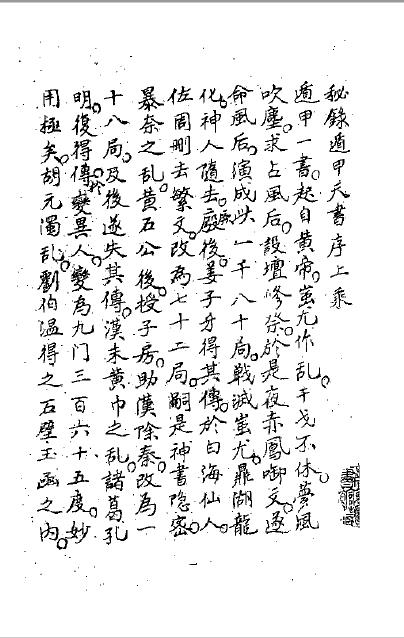 秘錄遁甲天書序上乘
遁甲一書。起自黃帝。蚩尤作亂。干戈不休。夢風
吹塵。求占風后。設壇修祭。於是夜赤鳳啣文。遂
命風后。演成此一千八十局。戰滅蚩尤。鼎湖龍
化。神人隨去。厥後姜子牙得其傳。於白海仙人。
佐周刪去繁文。改為七十二局。嗣是神書隱密。
暴秦之亂。黃石公後授子房。助漢除秦。改為一
十八局。及後遂失其傳。漢末黃巾之亂。諸葛孔
明。復得傳於異人。變為九门三百六十五度。妙
用極矣。胡元濁亂。劉伯溫得之石壁玉函之內。